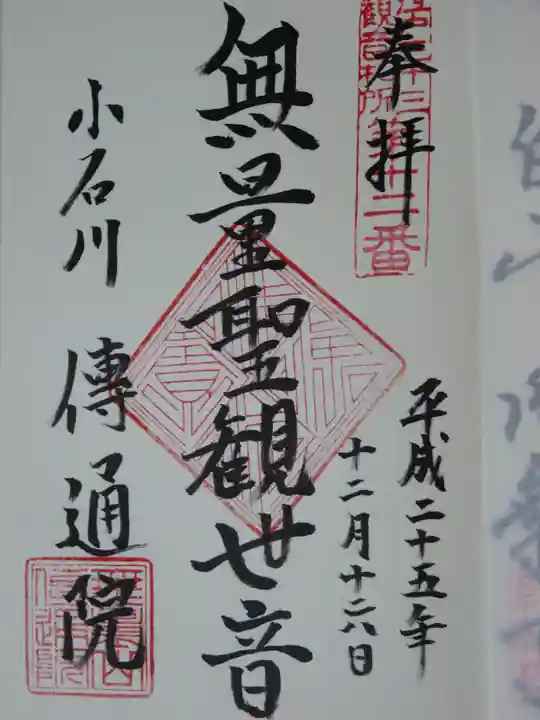 奉拝
江戸三十三
観音札所第十二番
平成二十五年
十二月十六日
無量聖観世音
小石川 傳通院